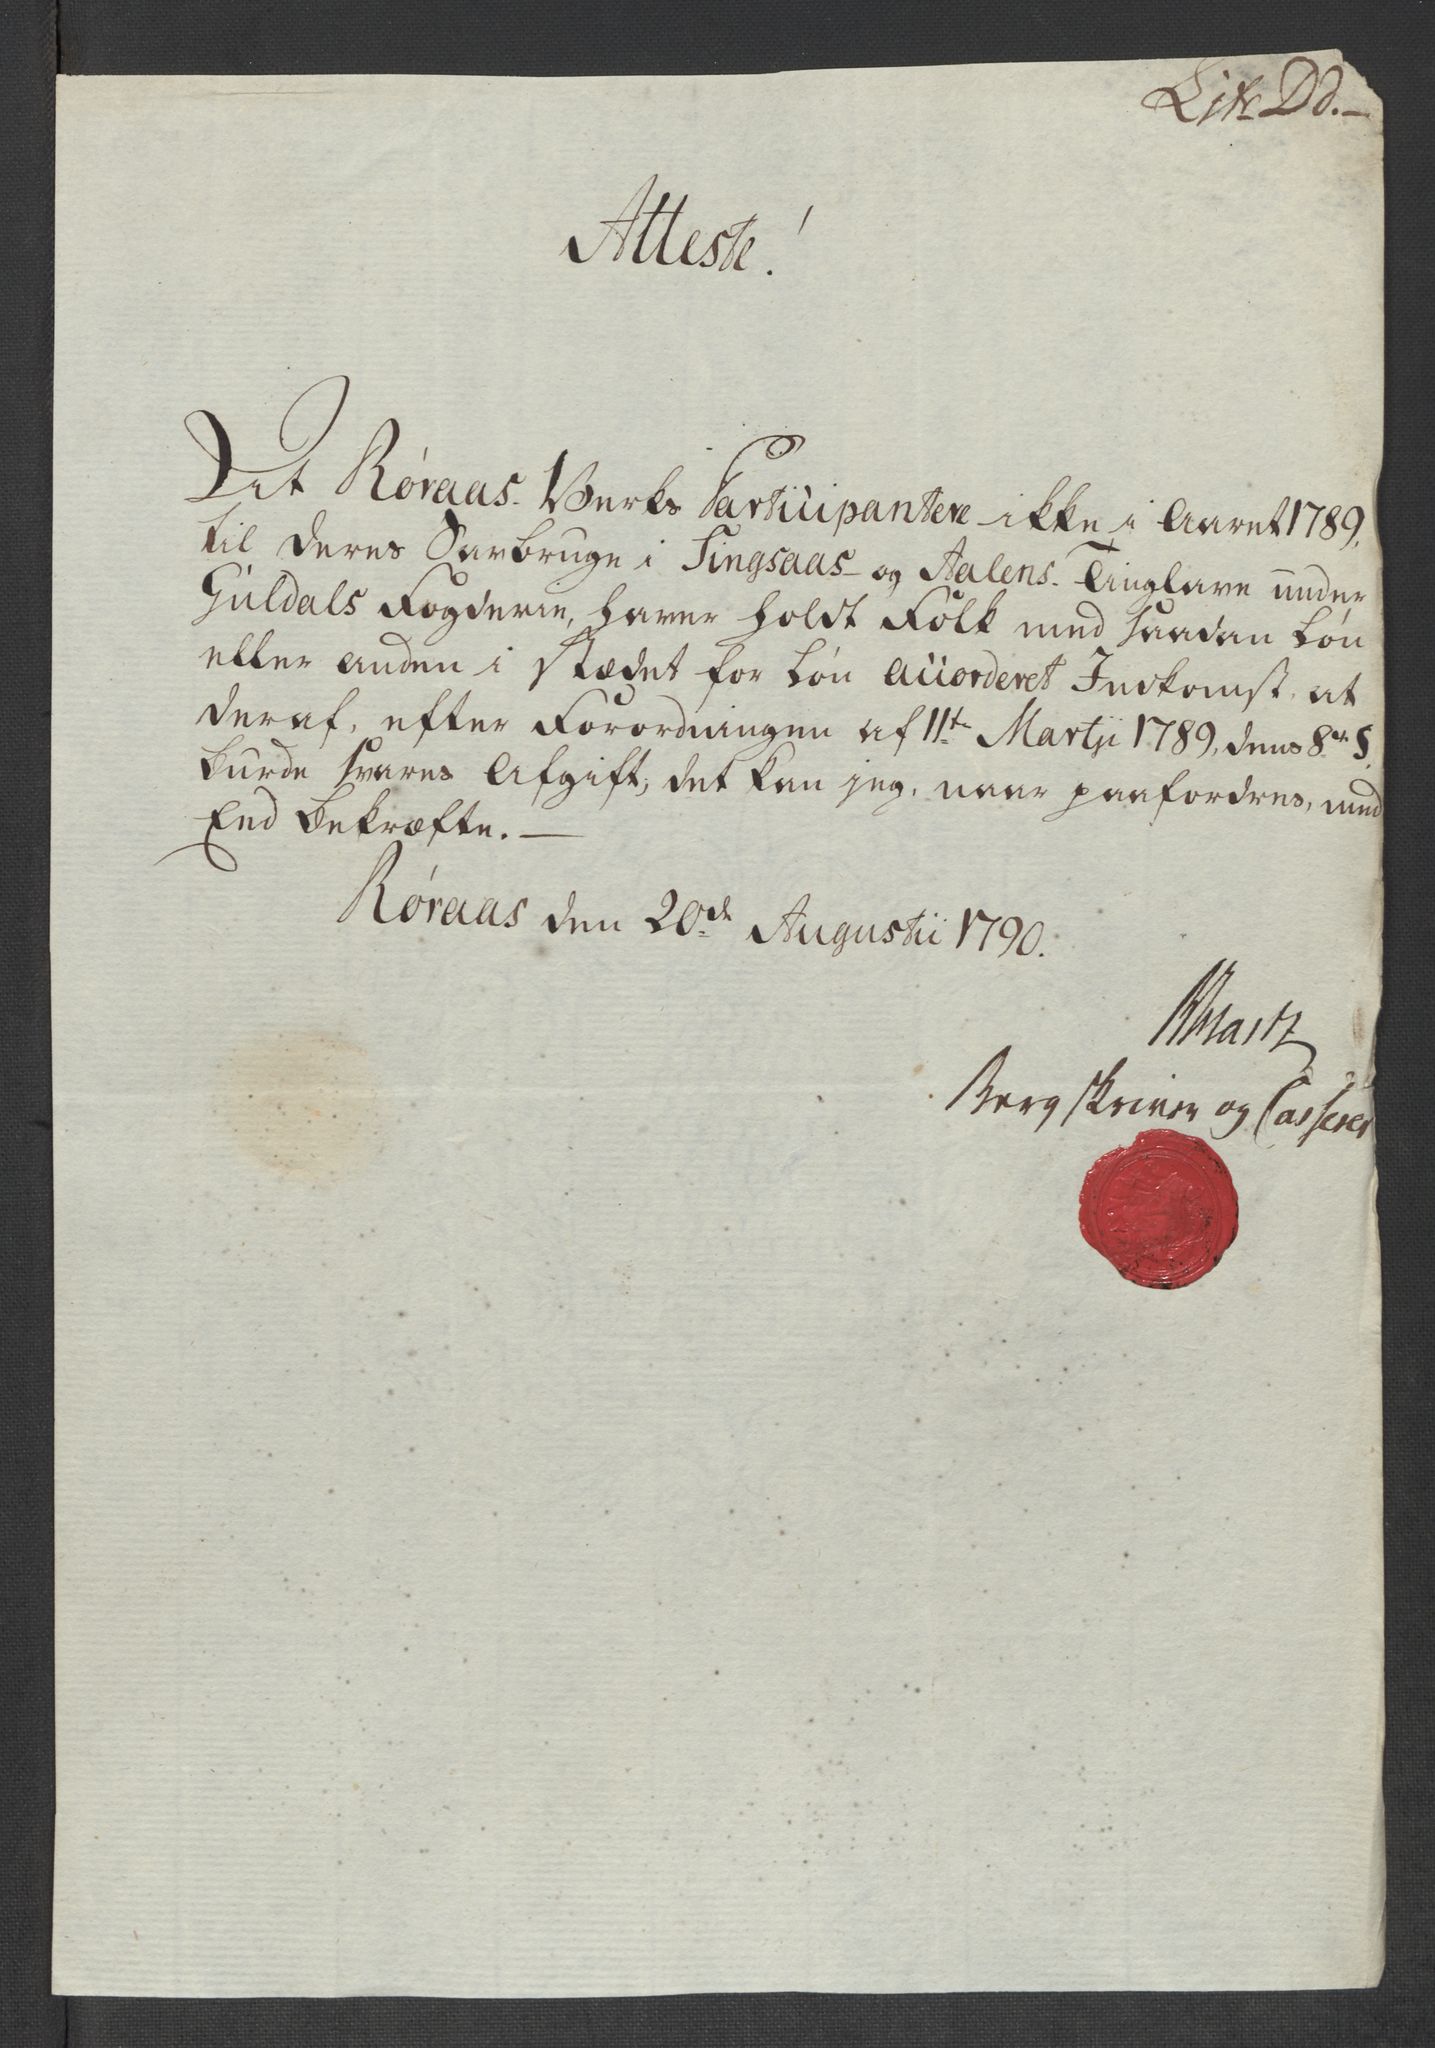 Litr Dd.
Atteste!
Det Røraas Werks Participantere ikke i Aaret 1789,
til deres Savbruge i Singsaas og Aalens Tinglave under
Guldals Fogderie, haver holdt Folk med saadan Løn
eller anden i stædet for Løn accorderet Indkomst, at
deraf, efter Forordningen af 11te Martji 1789, dens 8de §,
burde svares Afgift, det kan jeg, naar paafordres, med
Eed bekræfte. —
Røraas den 20de Augustii 1790.
Bergskriver og Casserer